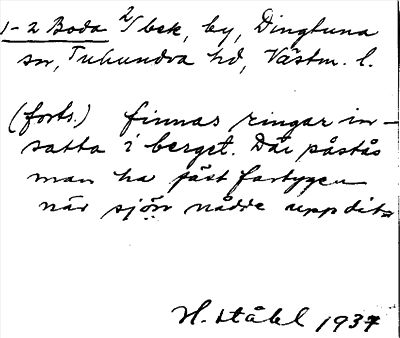 1-2 Boda 2/ bek, by, Dingtuna
sn, Tuhundra hd, Västm. l.
(forts.) finnas ringar in-
satta i berget. Där påstås
man ha fäst fartygen
när sjön nådde uppdit
H. Ståhl 1937